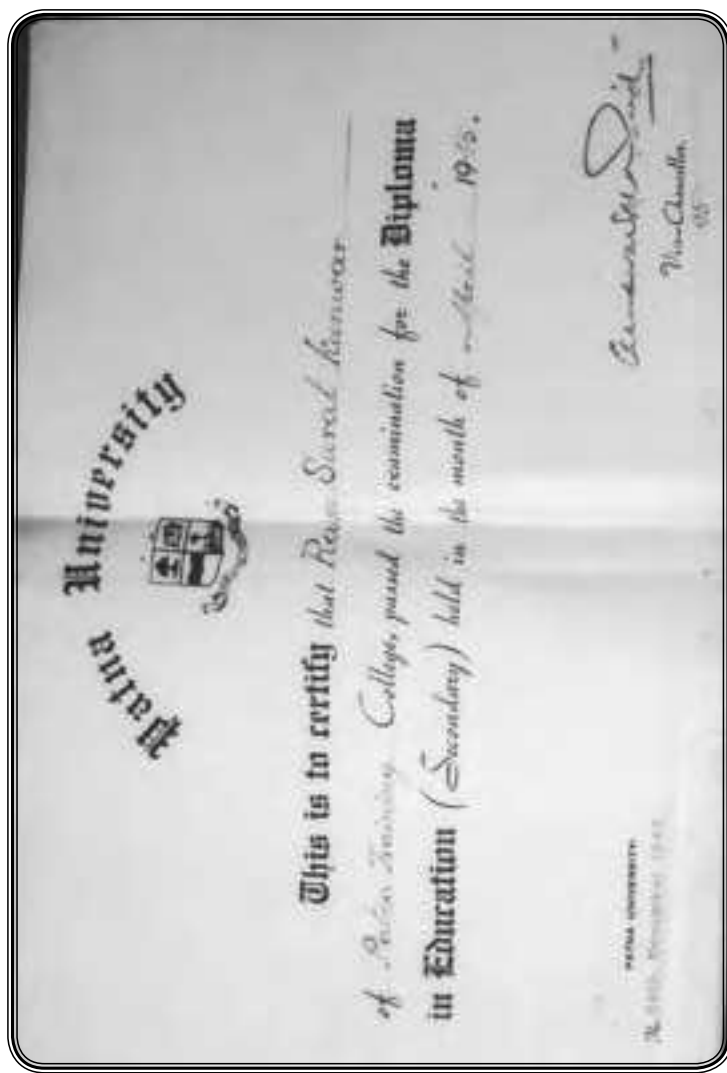 Patna University
This is to certify that Ram Surat Kunwar
of Patna Training College, passed the examination for the Diploma
in Education (Secondary) held in the month of April 19
Vice-Chancellor.
PATNA UNIVERSITY:
The